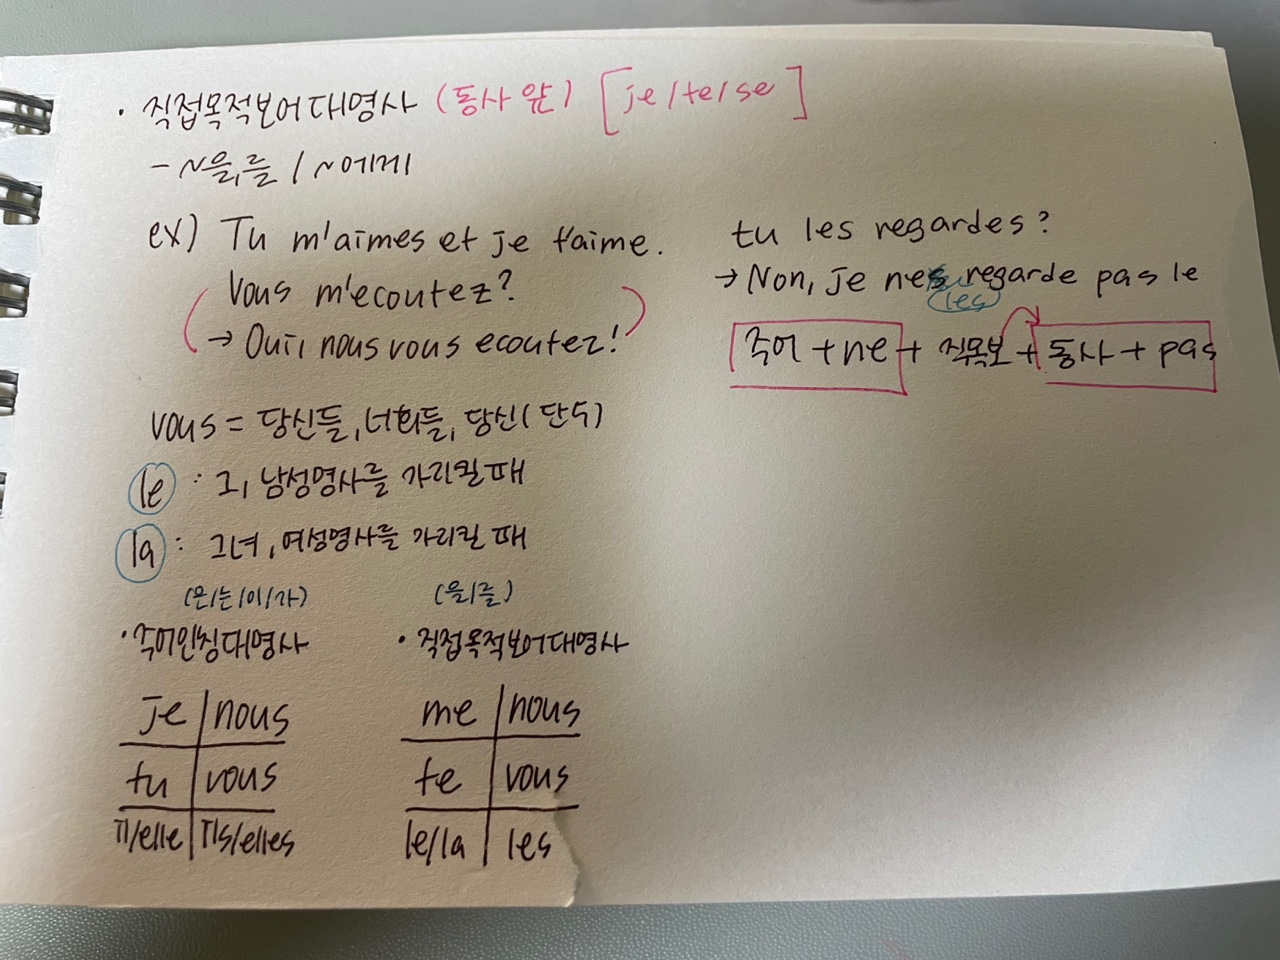 · 직접목적보어대명사 (동사 앞) [je/te/se]
- ~을,를 / ~에게
ex) Tu m'aimes et je t'aime.
Vous m'ecoutez?
→ Oui, nous vous ecoutez!
vous = 당신들, 너희들, 당신(단수)
le : 그, 남성명사를 가리킬 때
la : 그녀, 여성명사를 가리킬 때
(은/는/이/가)
· 주어인칭대명사
je | nous
tu | vous
il/elle | ils/elles
(을/를)
· 직접목적보어대명사
me | nous
te | vous
le/la | les
tu les regardes?
→ Non, je ne regarde pas le
(les)
주어 + ne + 직목보 + 동사 + pas